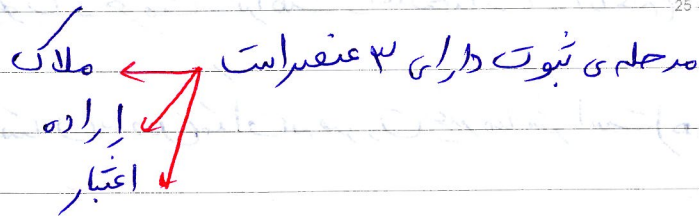 25
مرحله ی ثبوت دارای ۳ عنصر است ملاک
اراده
اعتبار